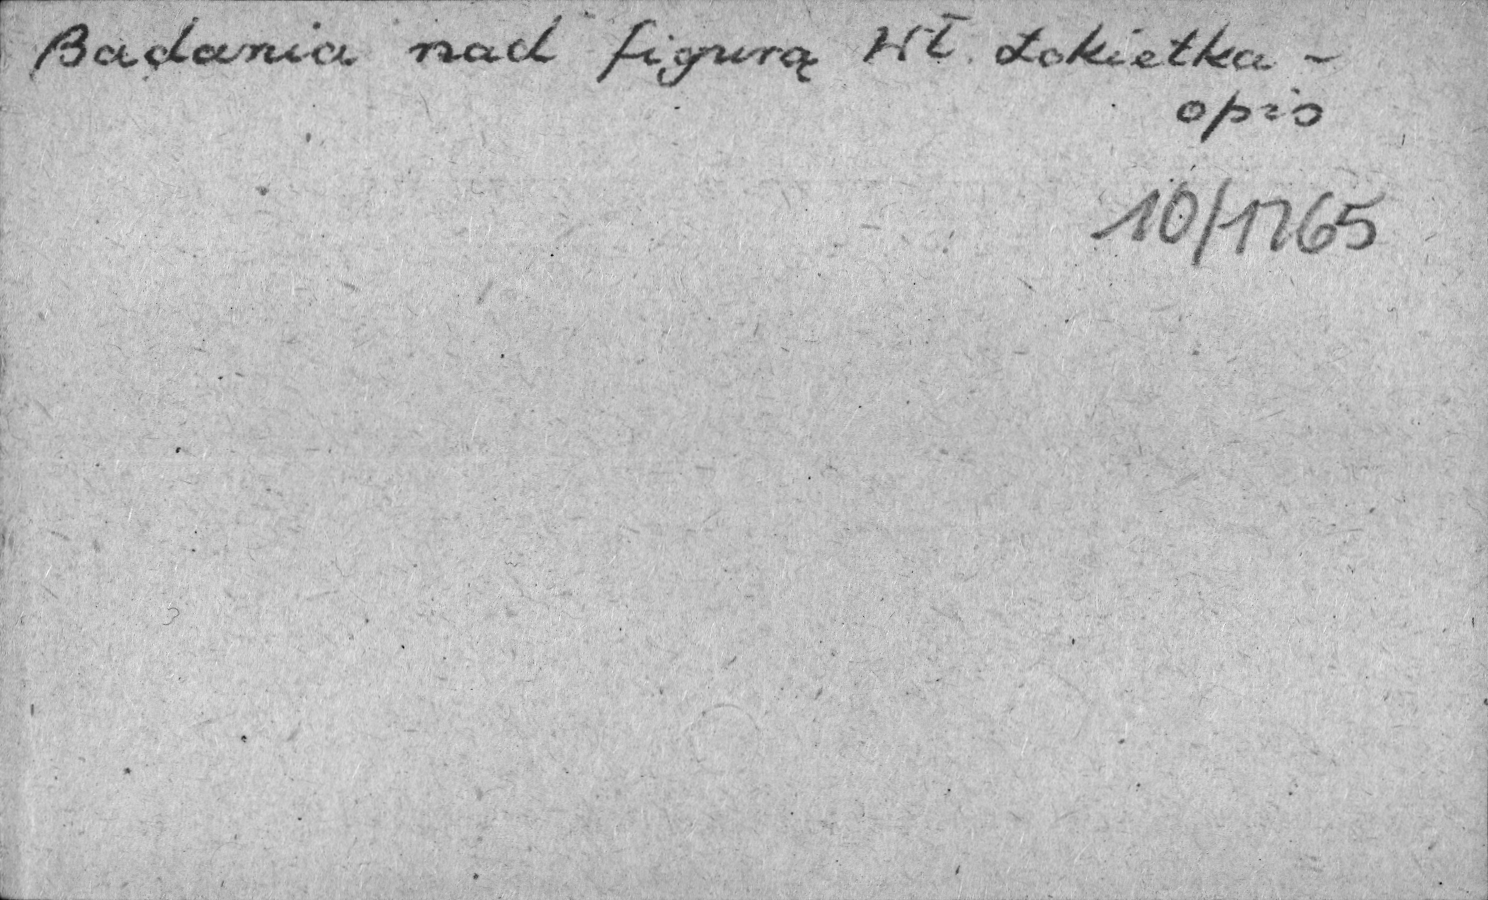 Badania nad figurą Wł. Łokietka –
opis
10/1765